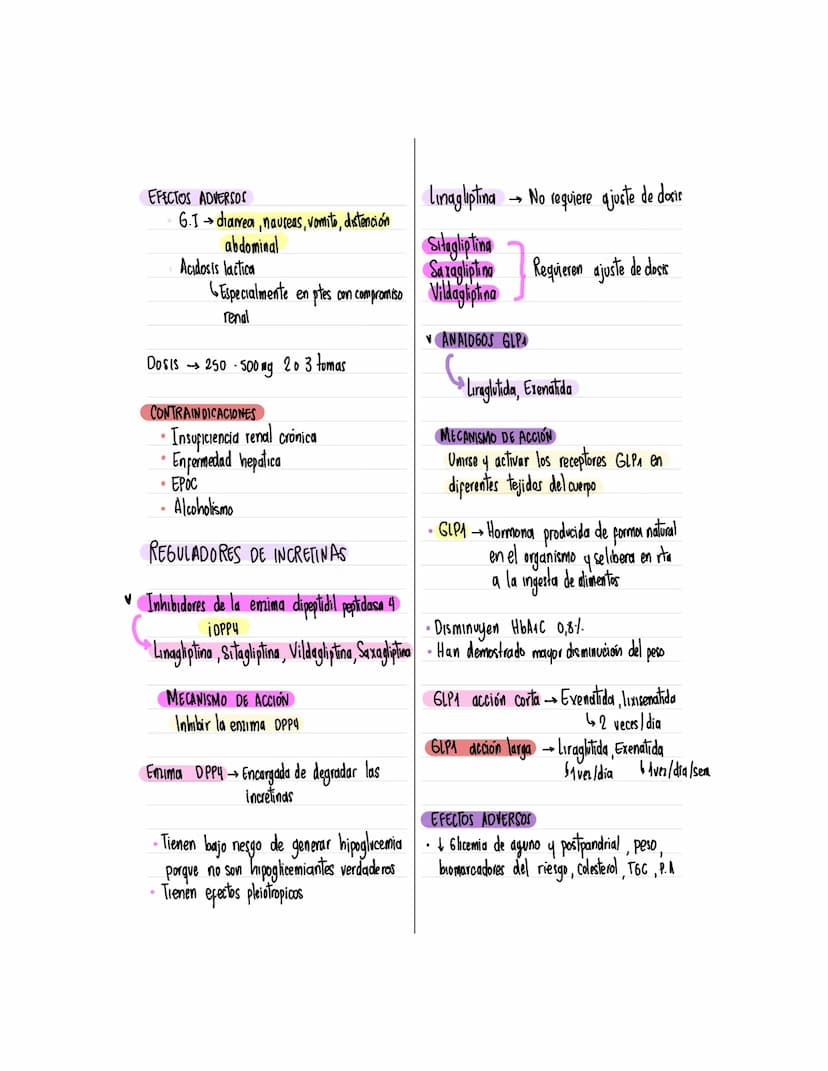 EFECTOS ADVERSOS
G.I → diarrea, nauseas, vomito, distención
abdominal
Acidosis lactica
↳ Especialmente en ptes con compromiso
renal
Dosis → 250 - 500 mg 2 o 3 tomas
CONTRAINDICACIONES
• Insuficiencia renal crónica
• Enfermedad hepática
• EPOC
• Alcoholismo
REGULADORES DE INCRETINAS
Inhibidores de la enzima dipeptidil peptidasa 4
iDPP4
Linagliptina, Sitagliptina, Vildagliptina, Saxagliptina
MECANISMO DE ACCIÓN
Inhibir la enzima DPP4
Enzima DPP4 → Encargada de degradar las
incretinas
• Tienen bajo riesgo de generar hipoglicemia
porque no son hipoglicemiantes verdaderos
• Tienen efectos pleiotropicos
Linagliptina → No requiere ajuste de dosis
Sitagliptina
Saxagliptina
Vildagliptina
} Requieren ajuste de dosis
ANALOGOS GLP1
Liraglutida, Exenatida
MECANISMO DE ACCIÓN
Unirse y activar los receptores GLP1 en
diferentes tejidos del cuerpo
• GLP1 → Hormona producida de forma natural
en el organismo y se libera en rta
a la ingesta de alimentos
• Disminuyen HbA1C 0,8%
• Han demostrado mayor disminución del peso
GLP1 acción corta → Exenatida, lixisenatida
↳ 2 veces/dia
GLP1 acción larga → Liraglutida, Exenatida
↳ 1 vez/dia ↳ 1 vez/dia/sem
EFECTOS ADVERSOS
• ↓ Glicemia de ayuno y postpandrial, peso,
biomarcadores del riesgo, Colesterol, TGC, P.A